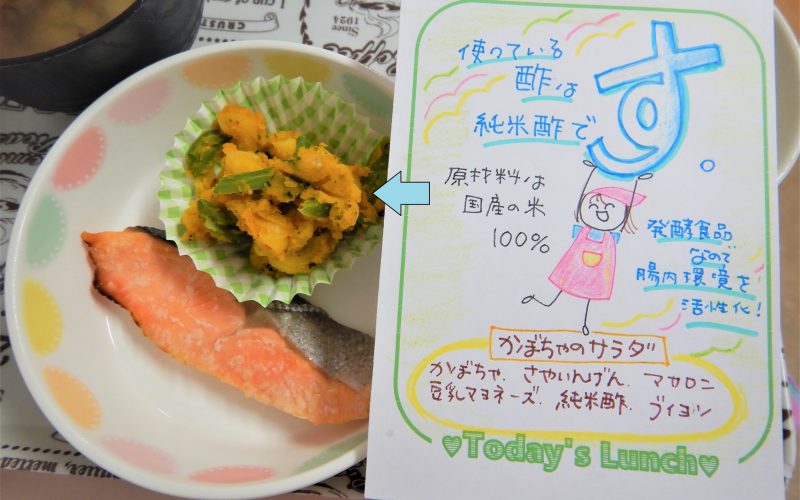 1 cup of
CRUST
Since
1924
使っている
酢は
純米酢で
す。
原材料は
国産の米
100%
発酵食品
なので
腸内環境を
活性化!
かぼちゃのサラダ
かぼちゃ、さやいんげん、マカロニ
豆乳マヨネーズ、純米酢、ブイヨン
♥Today's Lunch♥